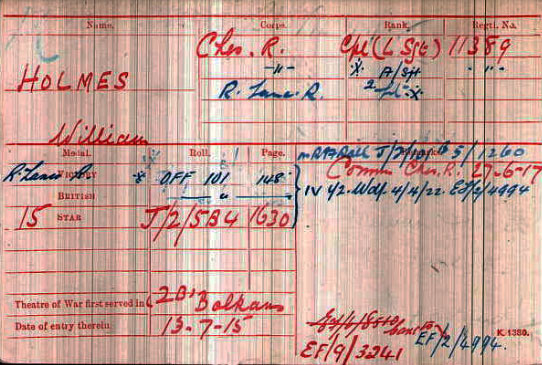 Name. Corps. Rank. Regtl. No.
HOLMES Ches. R. Cpl (L Sjt) 11389
—"— X A/Sjt —"—
R. Lanc. R. 2/Lt. X
William
Medal. Roll. Page.
R. Lanc R. VICTORY X OFF 101 148
BRITISH —"— —"—
15 STAR J/2/5B4 1630
J/2/101 B5/1260
Comm Ches. R. 27-6-17
IV 1/2. Wdf. 4/4/22. EF/2/4994
Theatre of War first served in (2B) Balkans
Date of entry therein 13-7-15
K. 1380.
EF/9/3241
EF/2/4994.